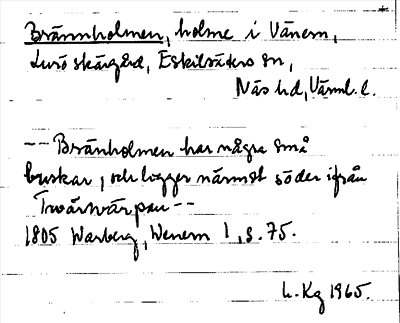 Brännholmen, holme i Vänern,
Lurö skärgård, Eskilsäters sn,
Näs hd, Värml. l.
-- Bränholmen har några små
buskar, och ligger närmst söder ifrån
Twärwärpan --
1805 Warberg, Wenern 1, s. 75.
L. Kg 1965.